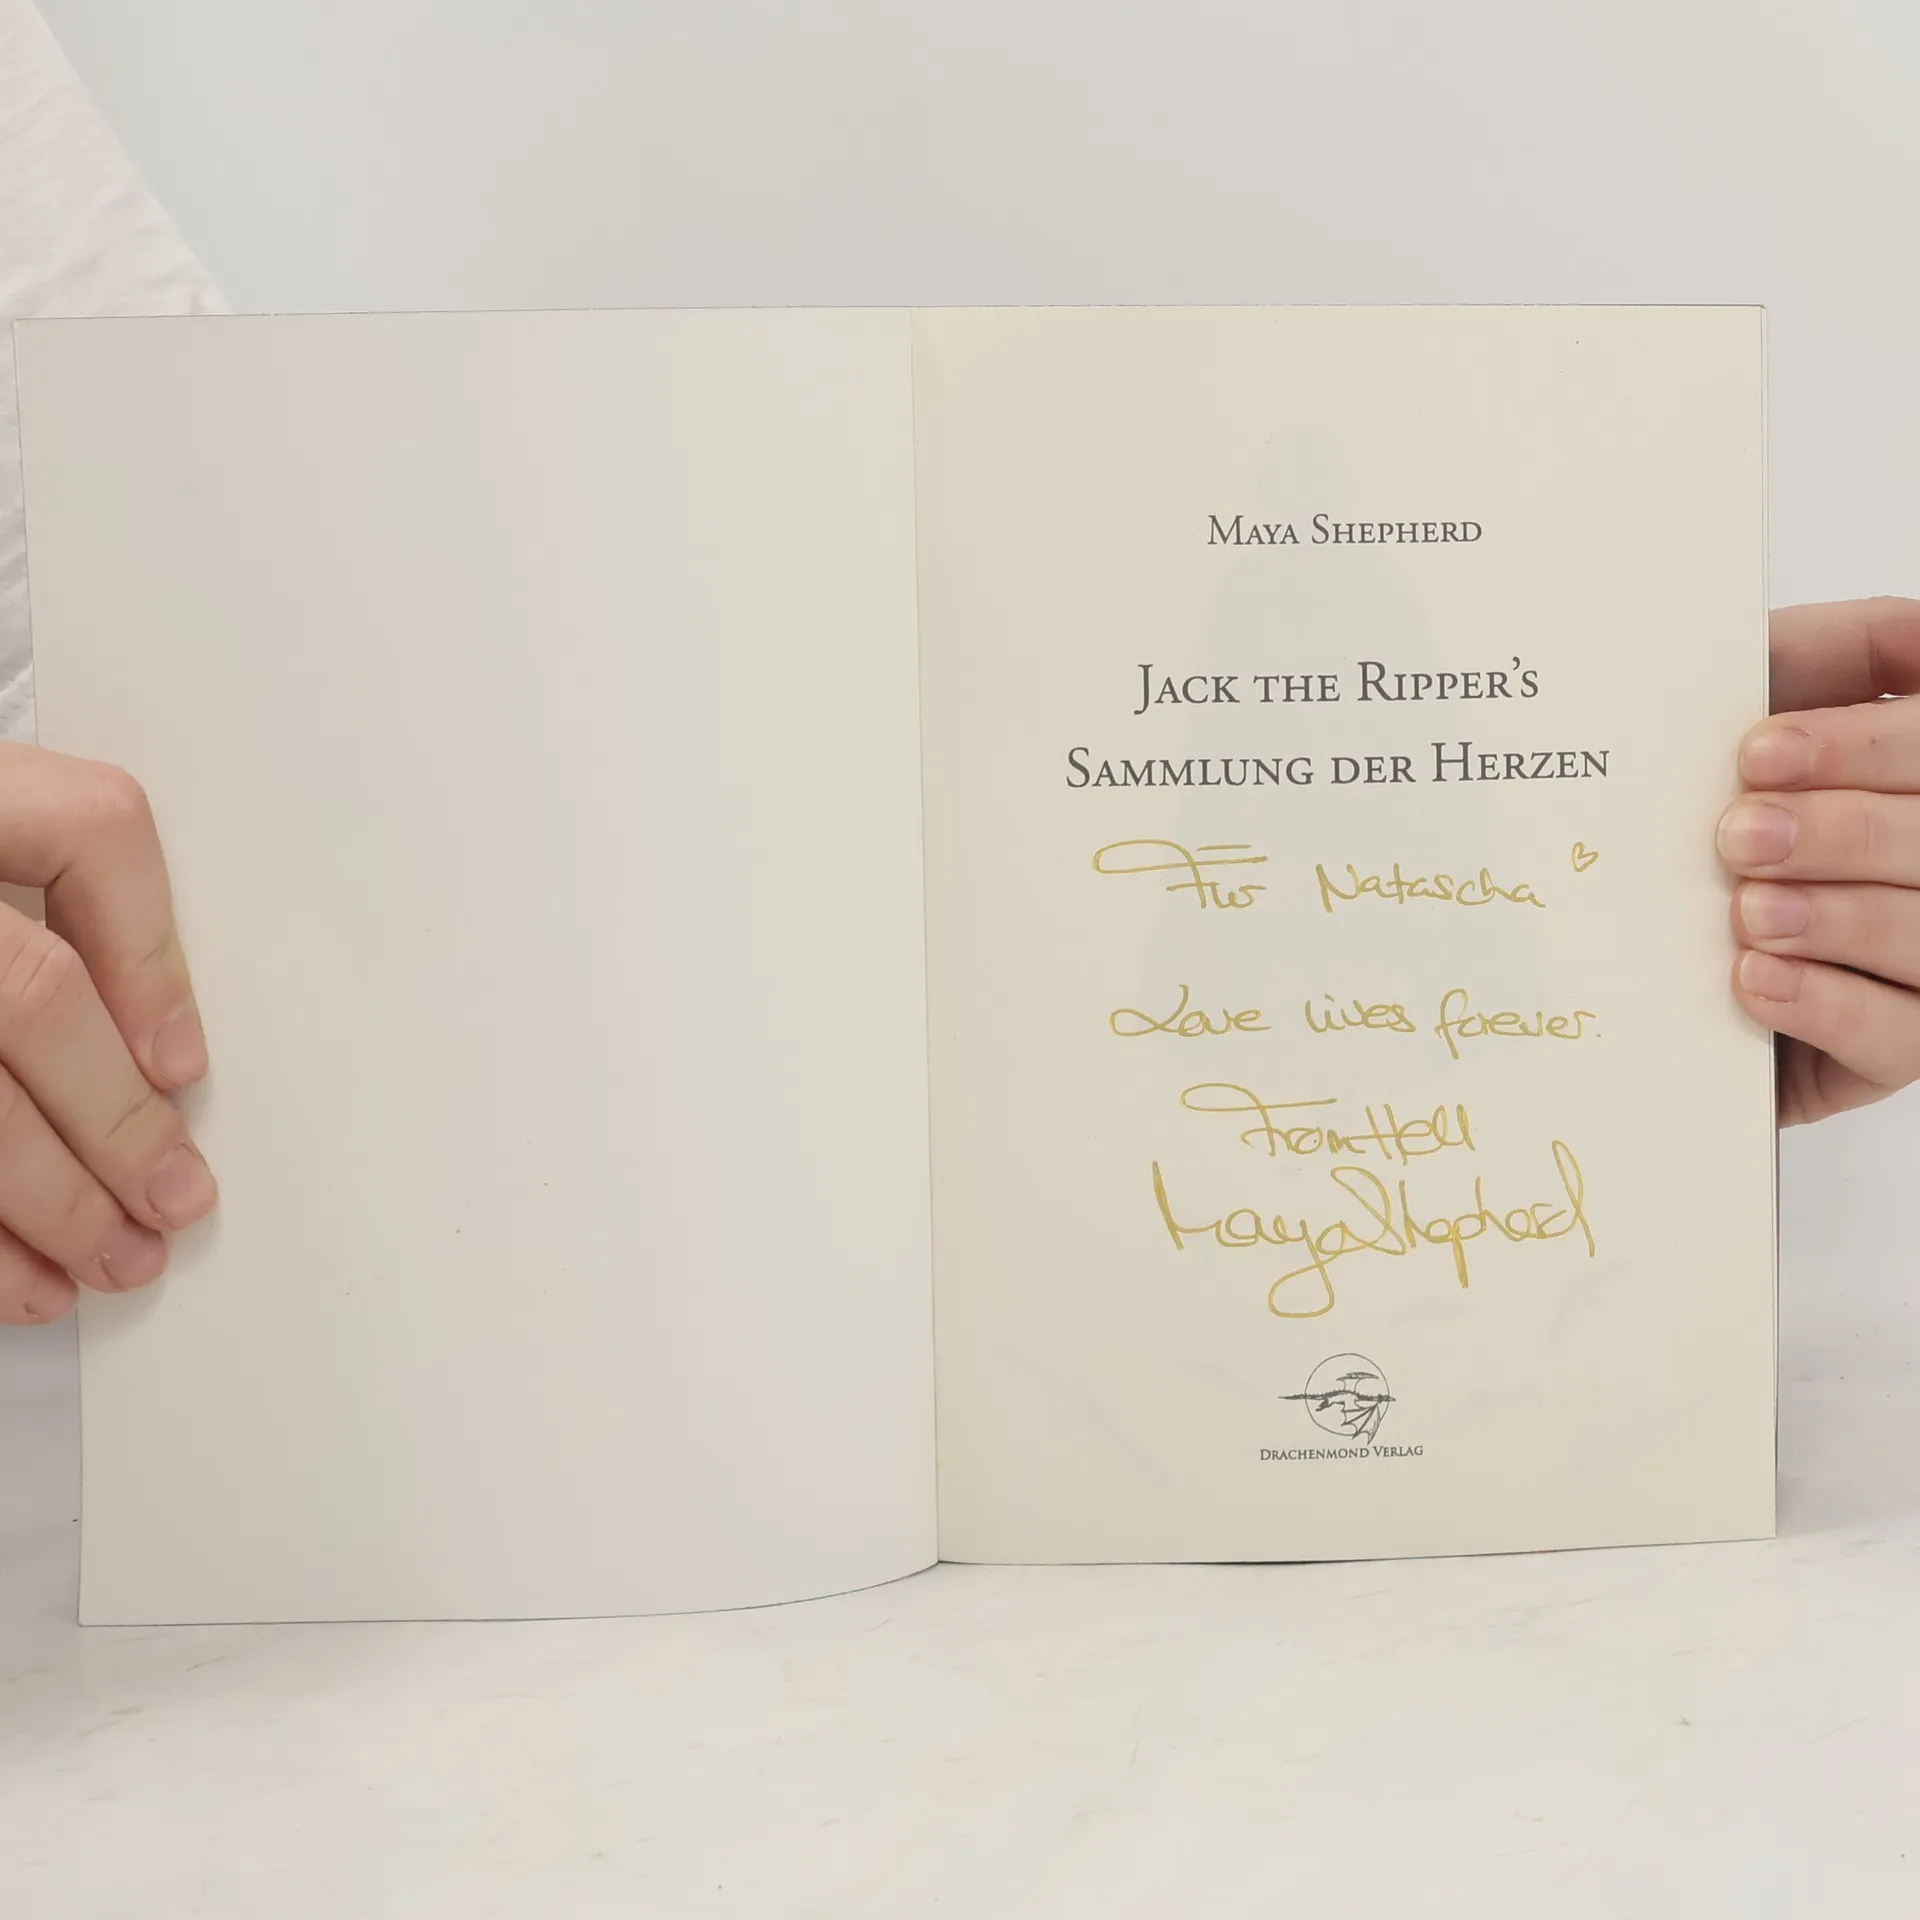 Maya Shepherd
Jack the Ripper's
Sammlung der Herzen
Für Natascha
Love lives forever.
From Hell
Maya Shepherd
Drachenmond Verlag